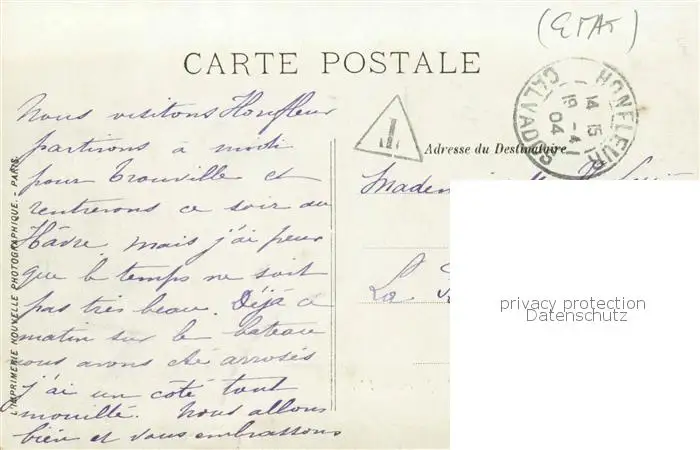 (ETAT)
CARTE POSTALE
HONFLEUR
14 15
19 -4
04
CALVADOS
1
Adresse du Destinataire
L'IMPRIMERIE NOUVELLE PHOTOGRAPHIQUE. - PARIS
Nous visitons Honfleur
partirons à midi
pour Trouville et
rentrerons ce soir au
Hâvre, mais j'ai peur
que le temps ne soit
pas très beau. Déjà ce
matin sur le bateau
nous avons été arrosés
j'ai un côté tout
mouillé. Nous allons
bien et vous embrassons
La
privacy protection
Datenschutz